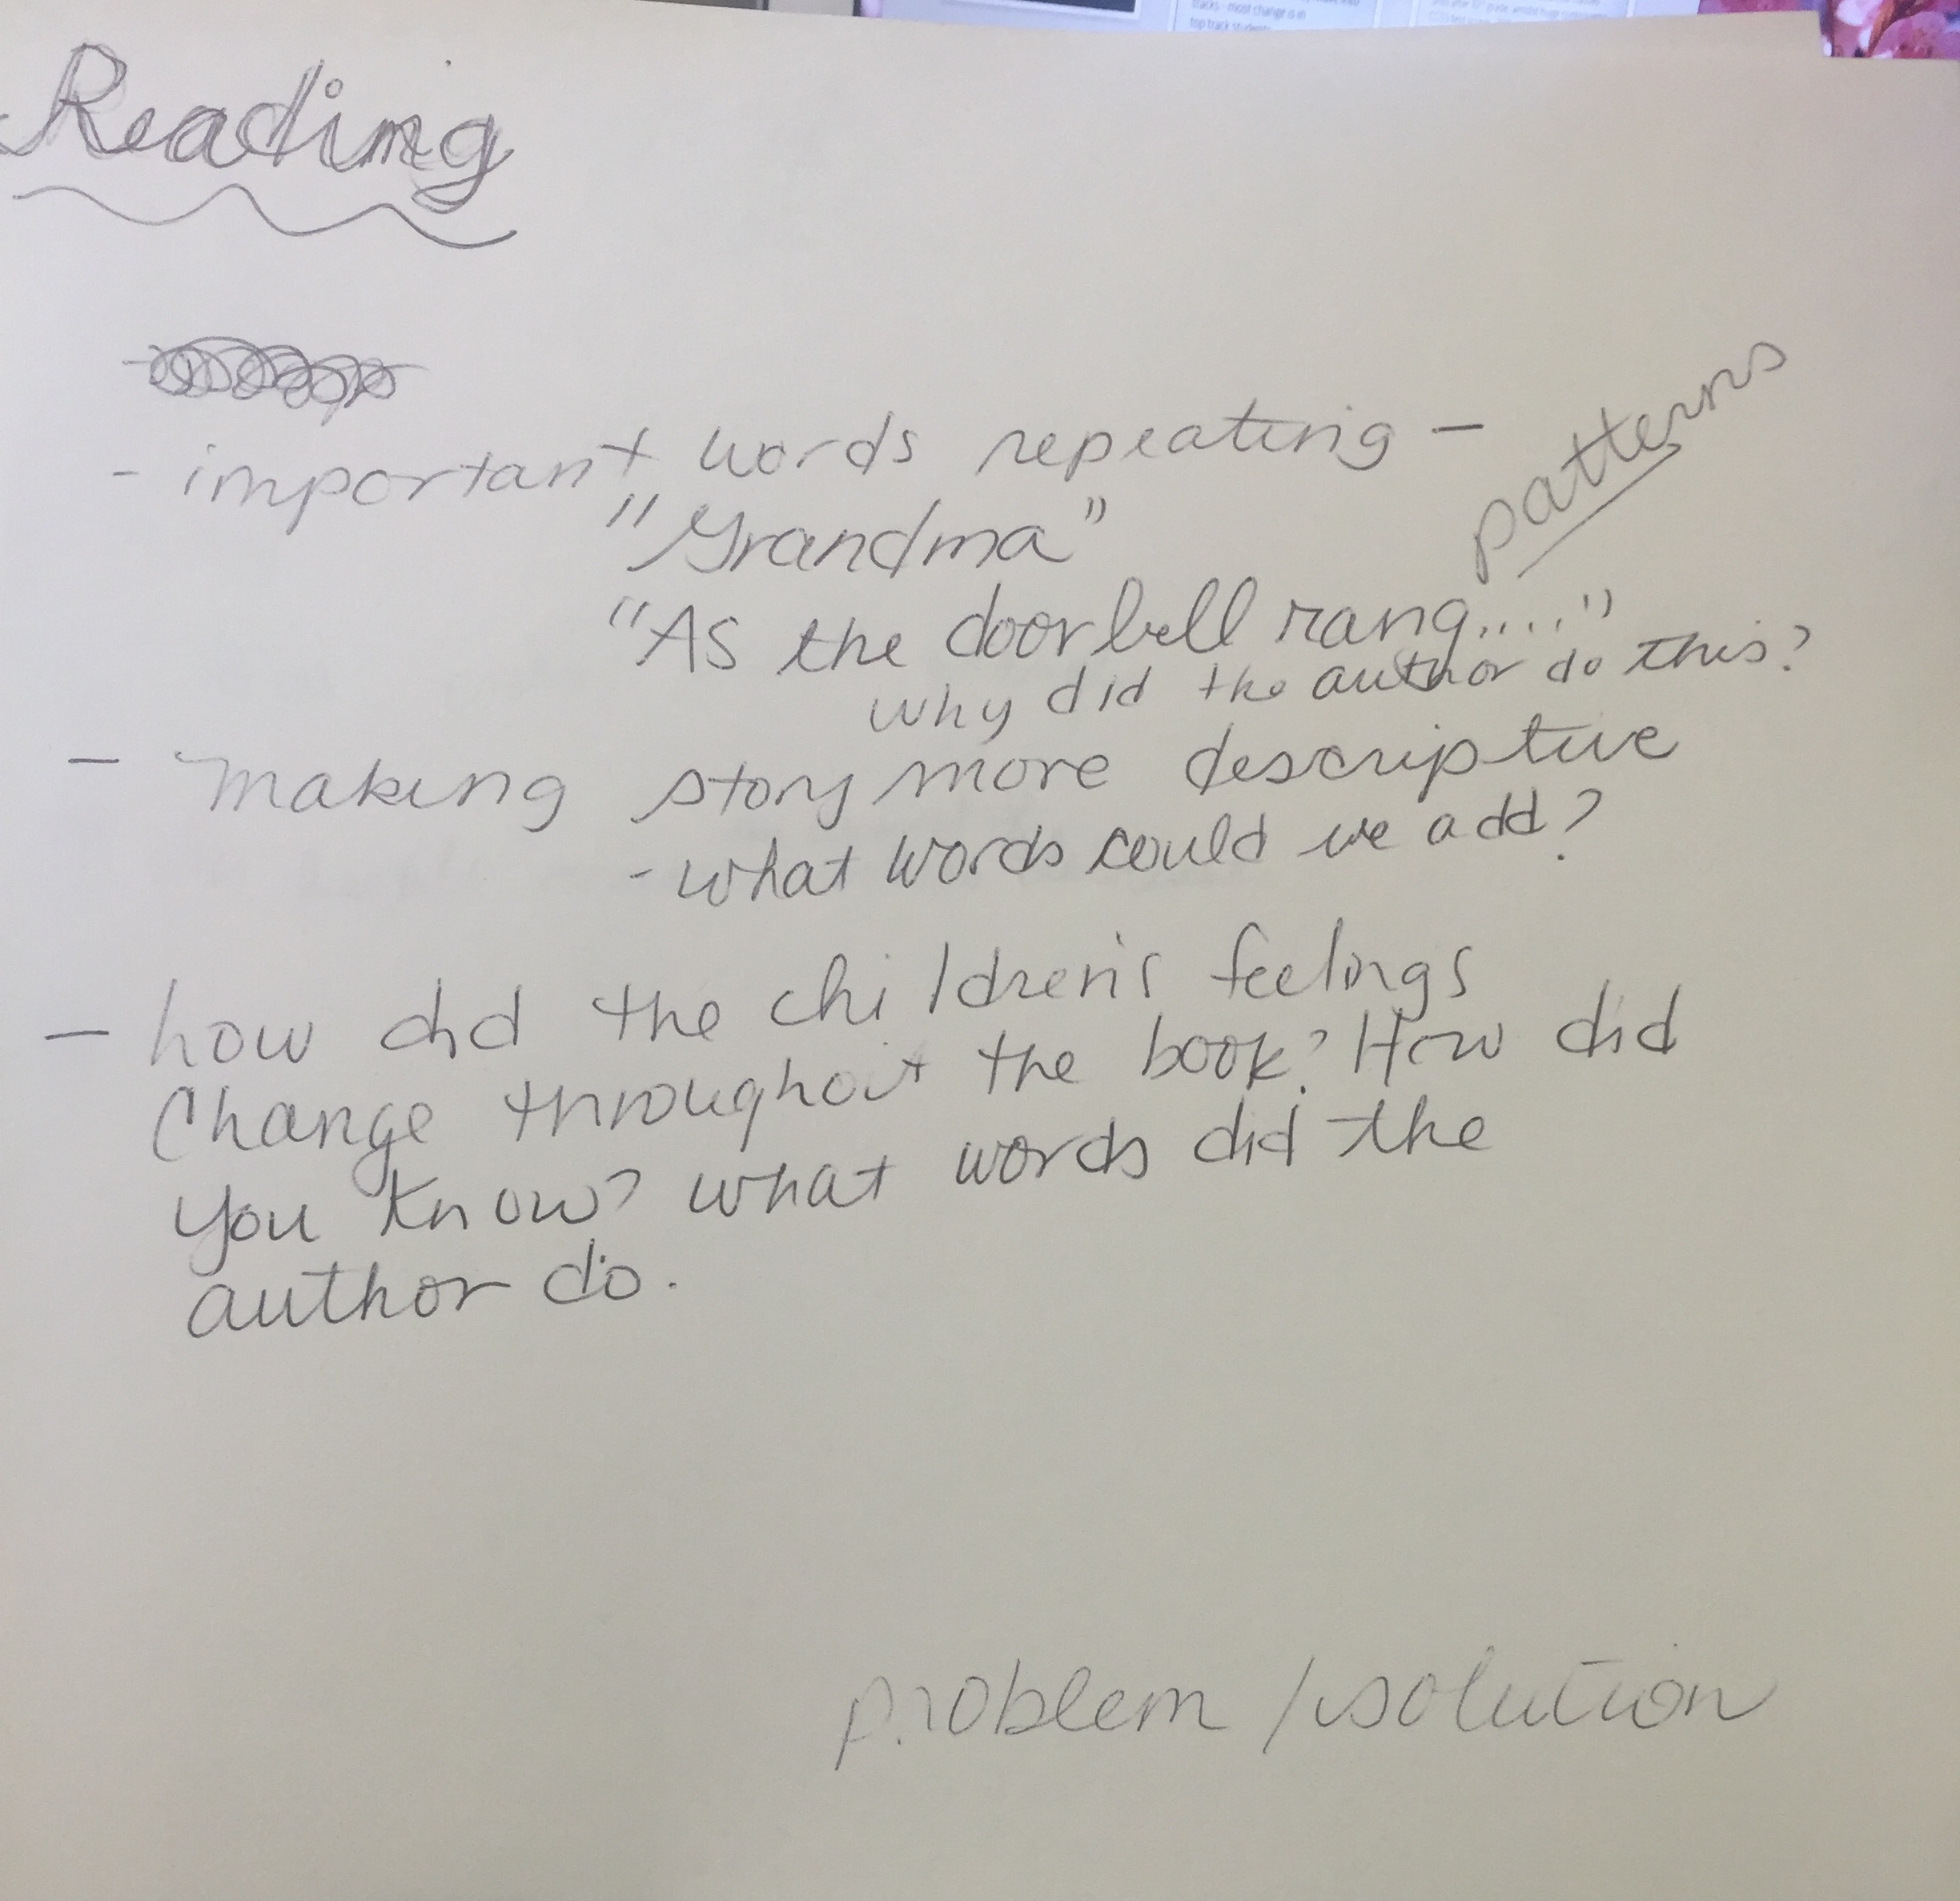 tracks - most change is in
top track students
Reading
- important words repeating - patterns
"Grandma"
"As the doorbell rang....."
why did the author do this?
- making story more descriptive
- what words could we add?
- how did the children's feelings
change throughout the book? How did
you know? what words did the
author do.
problem / solution